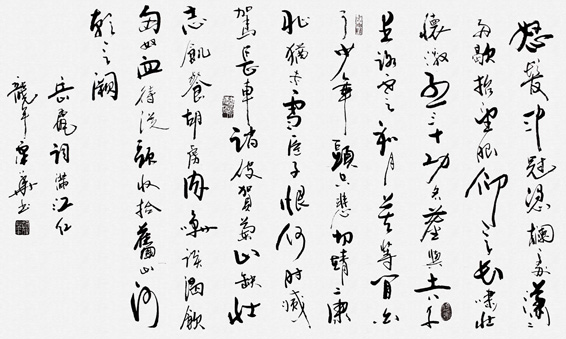 怒髮冲冠憑欄處瀟〻
雨歇抬望眼仰天長嘯壯
懷激烈三十功名塵與土八千
里路雲和月莫等閒白
了少年頭空悲切靖康
恥猶未雪臣子恨何時滅
駕長車踏破賀蘭山缺壯
志飢餐胡虜肉笑談渴飲
匈奴血待從頭收拾舊山河
朝天闕
岳飛詞滿江红
龍年書